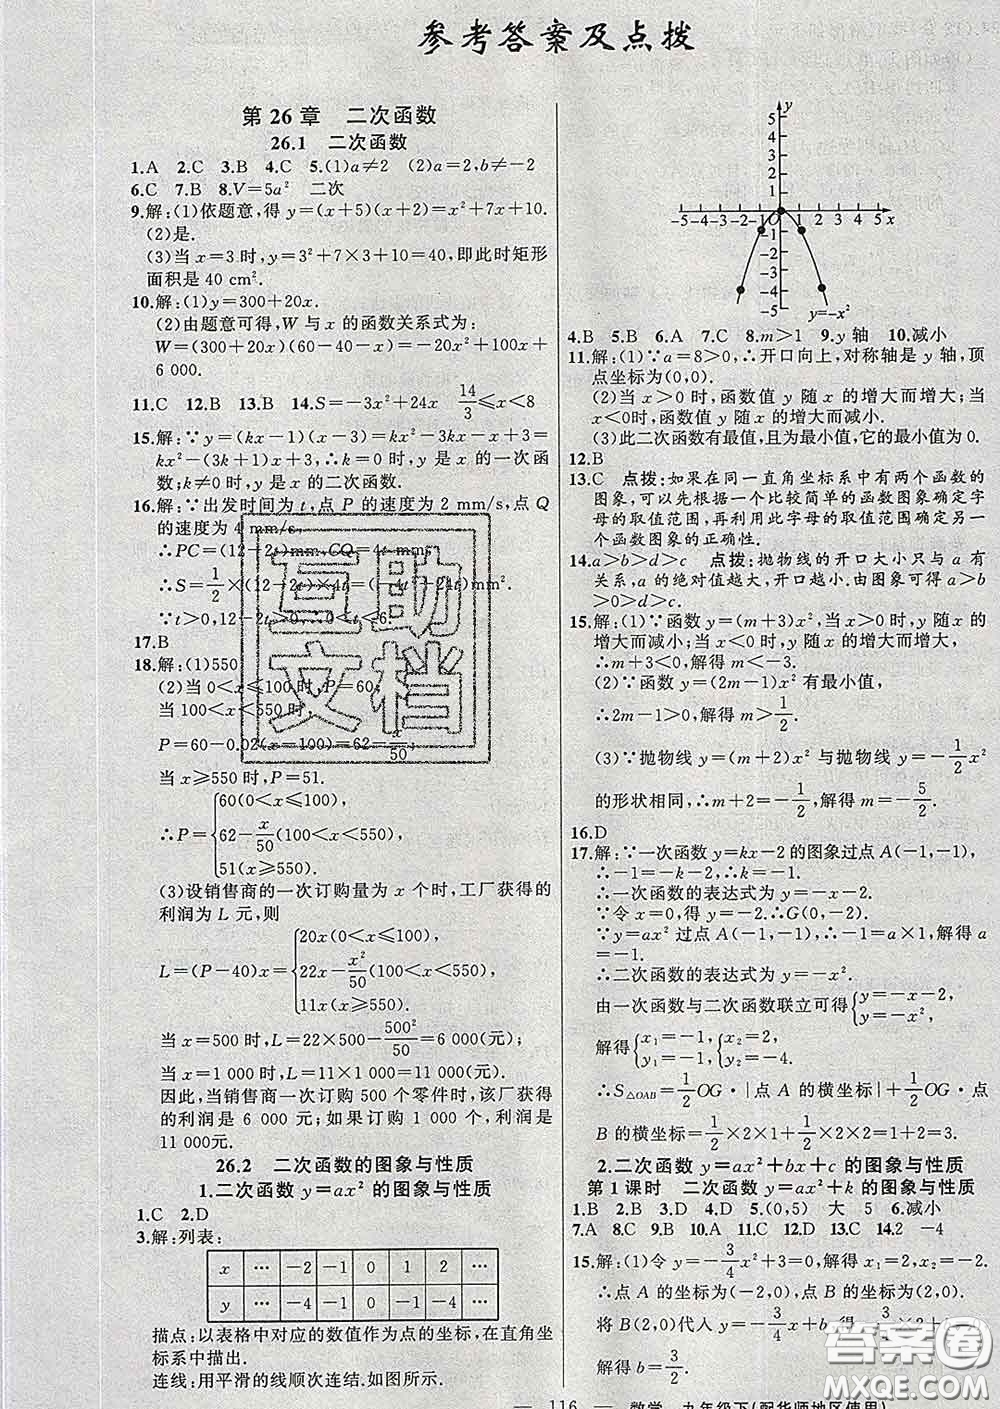 参考答案及点拨
第26章 二次函数
26.1 二次函数
1.A 2.C 3.B 4.C 5.(1)a≠2 (2)a=2,b≠-2
6.C 7.B 8.V=5a² 二次
9.解:(1)依题意,得 y=(x+5)(x+2)=x²+7x+10.
(2)是.
(3)当 x=3 时,y=3²+7×3+10=40,即此时矩形
面积是 40 cm².
10.解:(1)y=300+20x.
(2)由题意可得,W 与 x 的函数关系式为:
W=(300+20x)(60-40-x)=-20x²+100x+
6 000.
11.C 12.B 13.B 14.S=-3x²+24x 14/3≤x<8
15.解:∵y=(kx-1)(x-3)=kx²-3kx-x+3=
kx²-(3k+1)x+3,∴k=0 时,y 是 x 的一次函
数;k≠0 时,y 是 x 的二次函数.
16.解:∵出发时间为 t,点 P 的速度为 2 mm/s,点 Q
的速度为 4 mm/s,
∴PC=(12-2t)mm,CQ=4t mm,
∴S=1/2×(12-2t)×4t=(-4t²+24t)mm².
∵t>0,12-2t>0,∴0<t<6.
17.B
18.解:(1)550
(2)当 0<x≤100 时,P=60;
当 100<x<550 时,
P=60-0.02(x-100)=62-x/50;
当 x≥550 时,P=51.
60(0<x≤100),
∴P={62-x/50(100<x<550),
51(x≥550).
(3)设销售商的一次订购量为 x 个时,工厂获得的
利润为 L 元,则
20x(0<x≤100),
L=(P-40)x={22x-x²/50(100<x<550),
11x(x≥550).
当 x=500 时,L=22×500-500²/50=6 000(元);
当 x=1 000 时,L=11×1 000=11 000(元).
因此,当销售商一次订购 500 个零件时,该厂获得
的利润是 6 000 元;如果订购 1 000 个,利润是
11 000元.
26.2 二次函数的图象与性质
1.二次函数 y=ax² 的图象与性质
1.C 2.D
3.解:列表:
x … -2 -1 0 1 2 …
y … -4 -1 0 -1 -4 …
描点:以表格中对应的数值作为点的坐标,在直角坐
标系中描出.
连线:用平滑的线顺次连结.如图所示.
y
5
4
3
2
1
-5 -4 -3 -2 -1 O 1 2 3 4 5 x
-1
-2
-3
-4
-5
y=-x²
4.B 5.B 6.A 7.C 8.m>1 9.y 轴 10.减小
11.解:(1)∵a=8>0,∴开口向上,对称轴是 y 轴,顶
点坐标为(0,0).
(2)当 x>0 时,函数值 y 随 x 的增大而增大;当
x<0时,函数值 y 随 x 的增大而减小.
(3)此二次函数有最值,且为最小值,它的最小值为 0.
12.B
13.C 点拨:如果在同一直角坐标系中有两个函数的
图象,可以先根据一个比较简单的函数图象确定字
母的取值范围,再利用此字母的取值范围确定另一
个函数图象的正确性.
14.a>b>d>c 点拨:抛物线的开口大小只与 a 有
关系,a 的绝对值越大,开口越小.由图象可得 a>b
>0>d>c.
15.解:(1)∵函数 y=(m+3)x²,当 x>0 时,y 随 x 的
增大而减小;当 x<0 时,y 随 x 的增大而增大,
∴m+3<0,解得 m<-3.
(2)∵函数 y=(2m-1)x² 有最小值,
∴2m-1>0,解得 m>1/2.
(3)∵抛物线 y=(m+2)x² 与抛物线 y=-1/2x²
的形状相同,∴m+2=-1/2,解得 m=-5/2.
16.D
17.解:∵一次函数 y=kx-2 的图象过点 A(-1,-1),
∴-1=-k-2,∴k=-1.
∴一次函数的表达式为 y=-x-2.
∵令 x=0,得 y=-2.∴G(0,-2).
∵y=ax² 过点 A(-1,-1),∴-1=a×1,解得 a
=-1.
∴二次函数的表达式为 y=-x².
由一次函数与二次函数联立可得{y=-x-2,
y=-x²,
解得{x₁=-1,{x₂=2,
y₁=-1,y₂=-4.
∴S△OAB=1/2OG·|点 A 的横坐标|+1/2OG·点
B 的横坐标=1/2×2×1+1/2×2×2=3.
2.二次函数 y=ax²+bx+c 的图象与性质
第 1 课时 二次函数 y=ax²+k 的图象与性质
1.B 2.B 3.D 4.D 5.(0,5) 大 5 6.减小
7.A 8.C 9.B 10.A 11.C 12.D 13.C 14.2 -4
15.解:(1)令 y=-3/4x²+3=0,解得 x₁=2,x₂=-2.
∴点 A 的坐标为(-2,0),点 B 的坐标为(2,0).
将 B(2,0)代入 y=-3/4x+b,得
解得 b=3/2.
互助
文档
答案圈
MXQE.COM
— 116 — 数学 九年级下(配华师地区使用)